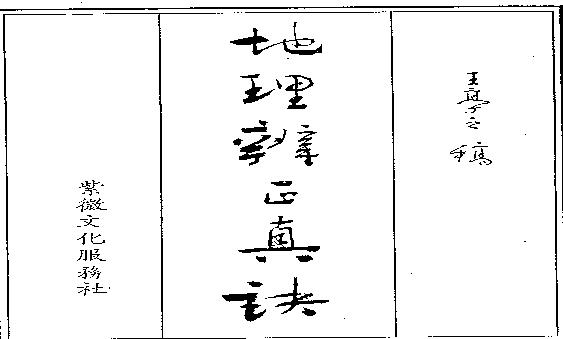 王亭之稿
地理辨正真訣
紫微文化服務社